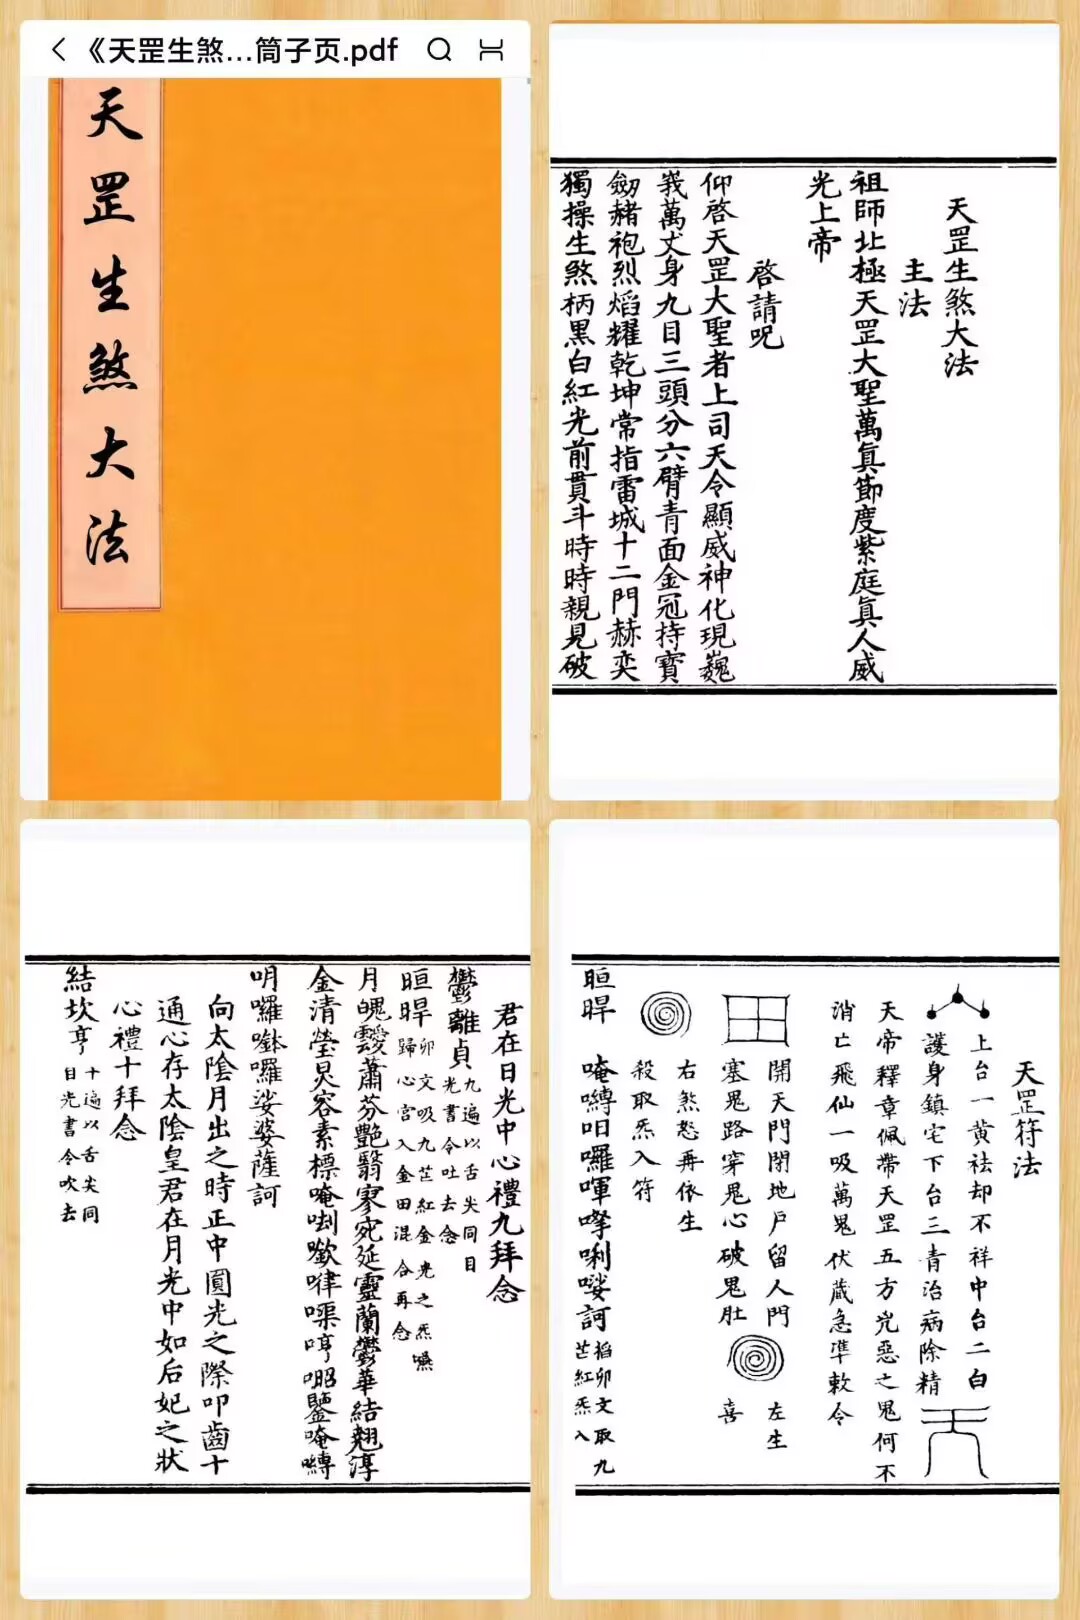 《天罡生煞...筒子页.pdf
天罡生煞大法
天罡生煞大法
主法
祖師北極天罡大聖萬眞節度紫庭眞人威
光上帝
啓請呪
仰啓天罡大聖者上司天令顯威神化現巍
峩萬丈身九目三頭分六臂青面金冠持寶
劒赭袍烈熖耀乾坤常指雷城十二門赫奕
獨操生煞柄黑白紅光前貫斗時時親見破
君在日光中心禮九拜念
鬱離貞九遍以舌尖同日
光書令吐去念
晅晘卯文吸九芒紅金光之炁嚥
歸心宮入金田混合再念
月魄靉蕭芬艷翳寥宛延靈蘭鬱華結翹淳
金清瑩炅容素標唵
唵嚩
明囉
囉娑婆薩訶
向太陰月出之時正中圓光之際叩齒十
通心存太陰皇君在月光中如后妃之狀
心禮十拜念
結坎亨十遍以舌尖同
日光書令吹去
天罡符法
上台一黄祛却不祥中台二白
護身鎮宅下台三青治病除精
天帝釋章佩帶天罡五方兇惡之鬼何不
消亡飛仙一吸萬鬼伏藏急準敕令
開天門閉地戶留人門
塞鬼路穿鬼心破鬼肚
左生
喜
右煞怒再依生
殺取炁入符
晅晘
唵嚩呾囉
唎娑訶
卯文取九
芒紅炁入